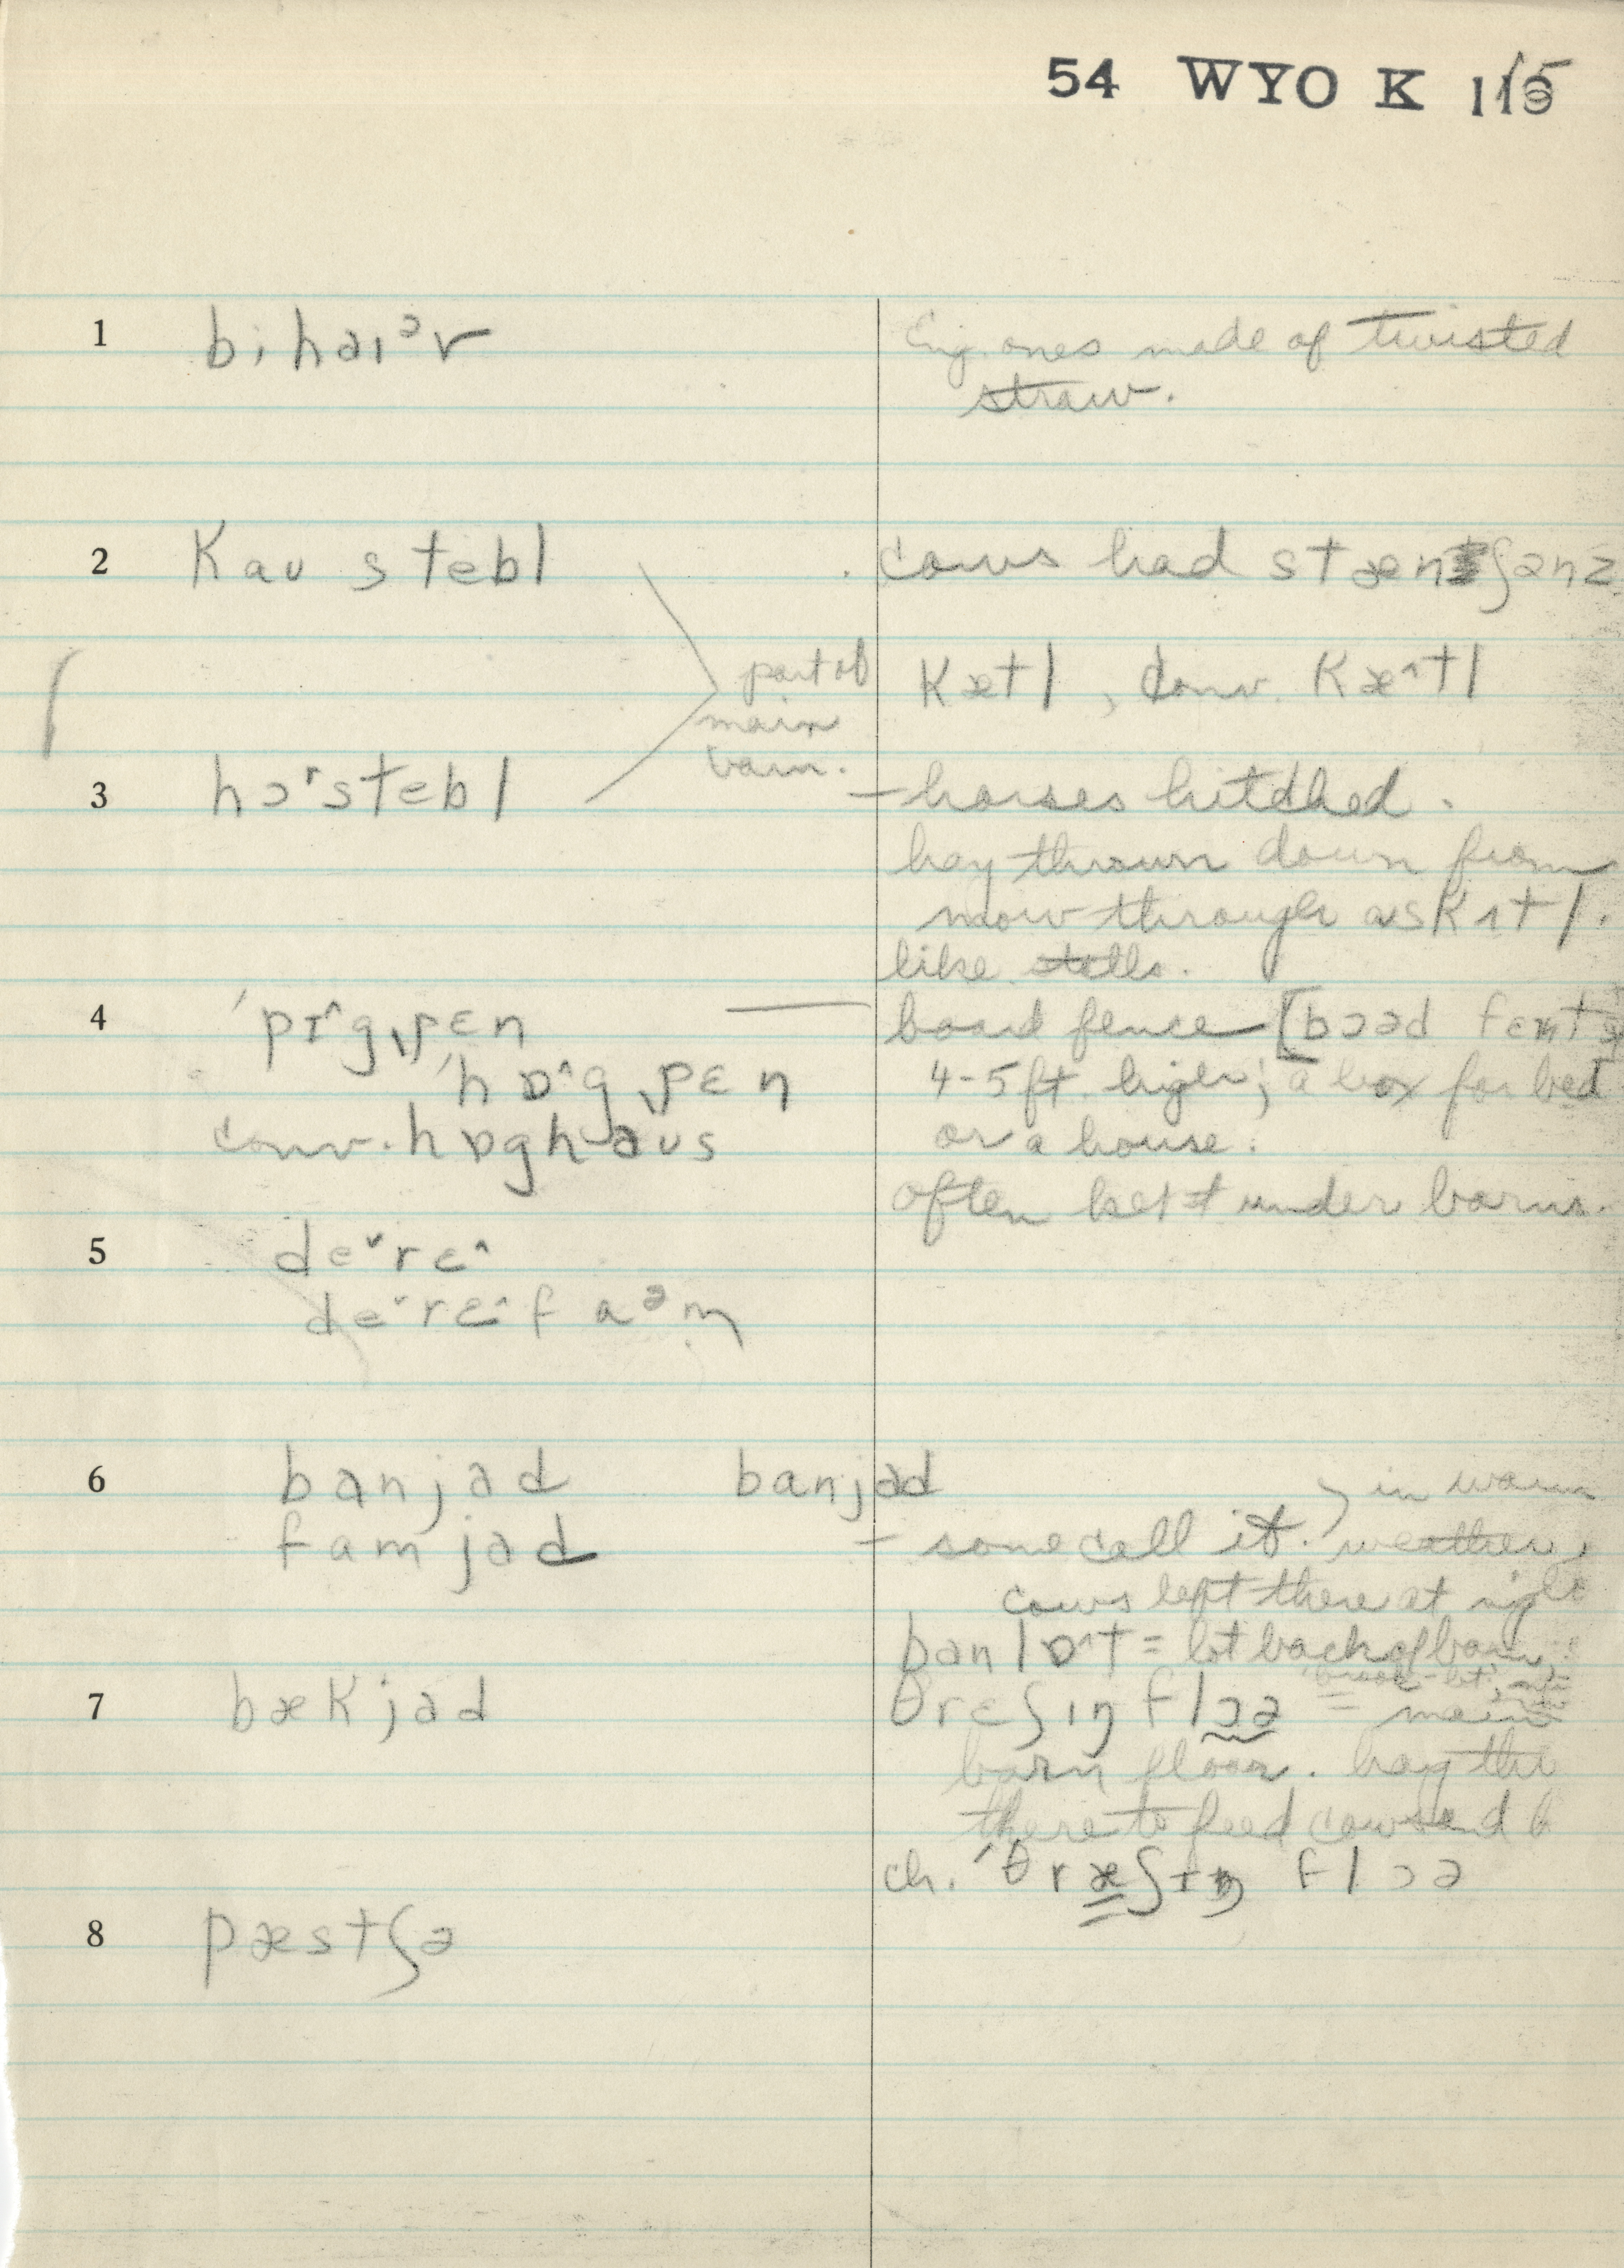 54 WYO K 115
1 bi haɪᵊr
Eng. ones made of twisted
straw.
2 kau stebl
cows had stænʃənz
part of
main
barn.
kætl, conv. kæ^tl
3 hɔrstebl
- horses hitched.
hay thrown down from
mow through a skʌtl.
like stalls.
4 ˈpɪ^gˌpɛn
board fence [bɔəd fɛnts
ˈhɒ^gˌpɛn
4-5 ft. high; a box for bed
conv. hɒghaus
or a house.
often kept under barns.
5 deˇrɛ^
deˇrɛ^faᵊm
6 banjad banjad
in warm
famjad
- some call it. weather,
cows left there at night
banlɒ^t = lot back of barn
7 bækjad
θrɛʃɪŋ flɔə = main
barn floor. hay
there to feed cows and
ch. ˈθræʃɪŋ flɔə
8 pæstʃə